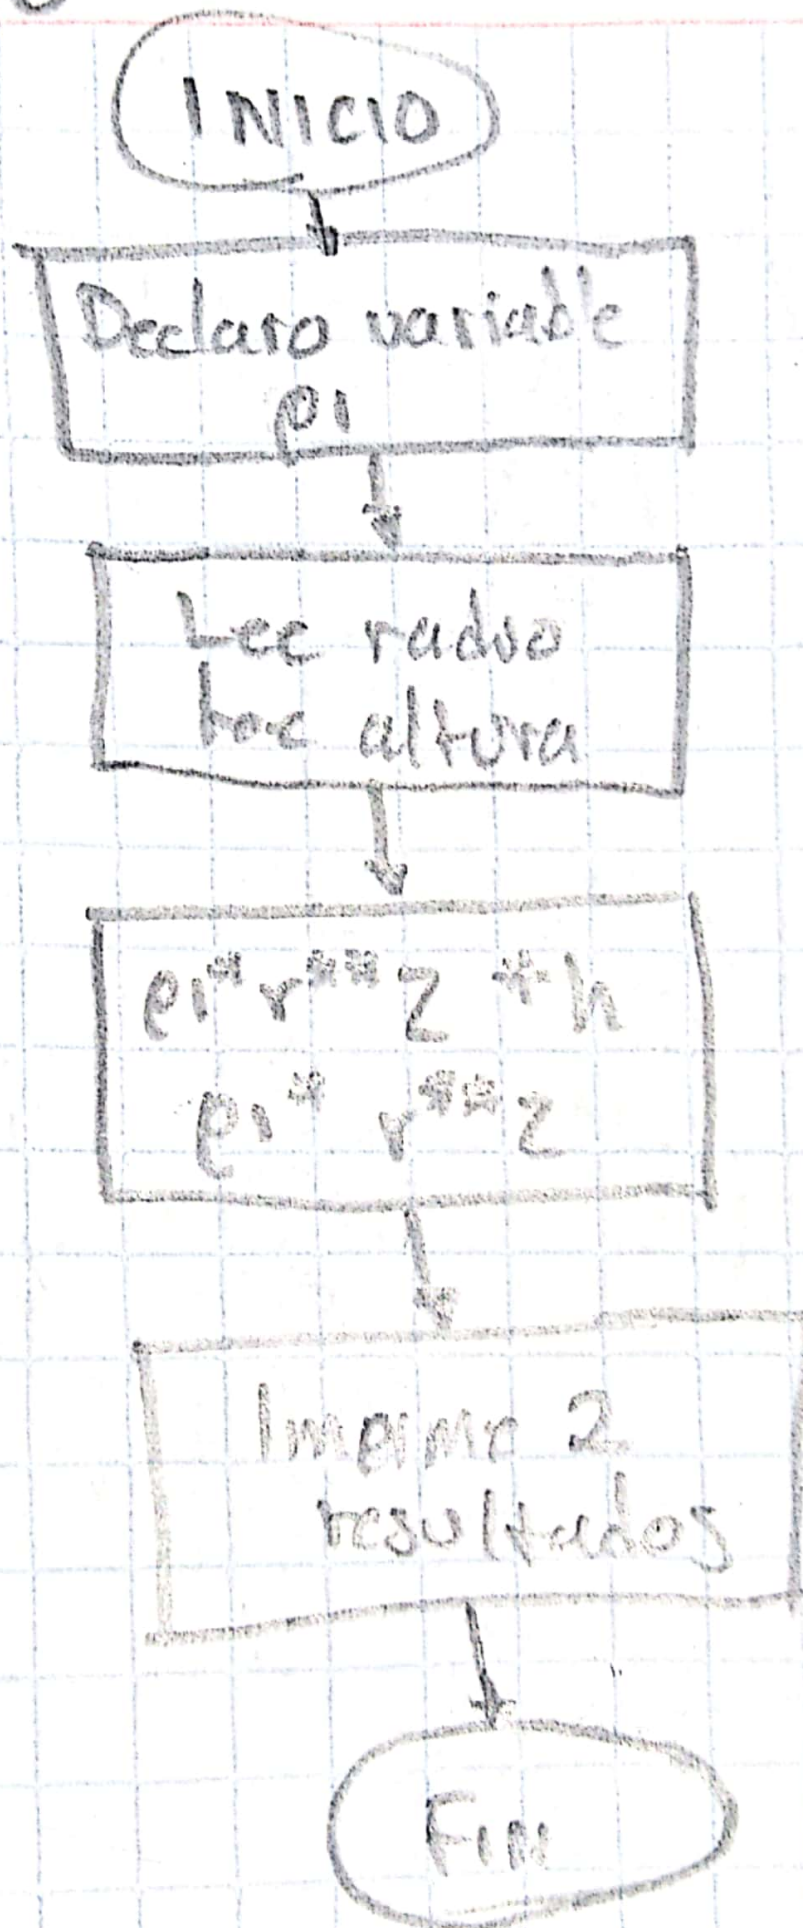 INICIO
Declaro variable
pi
Lee radio
Lee altura
pi*r**2 *h
pi* r**2
Imprime 2
resultados
FIN